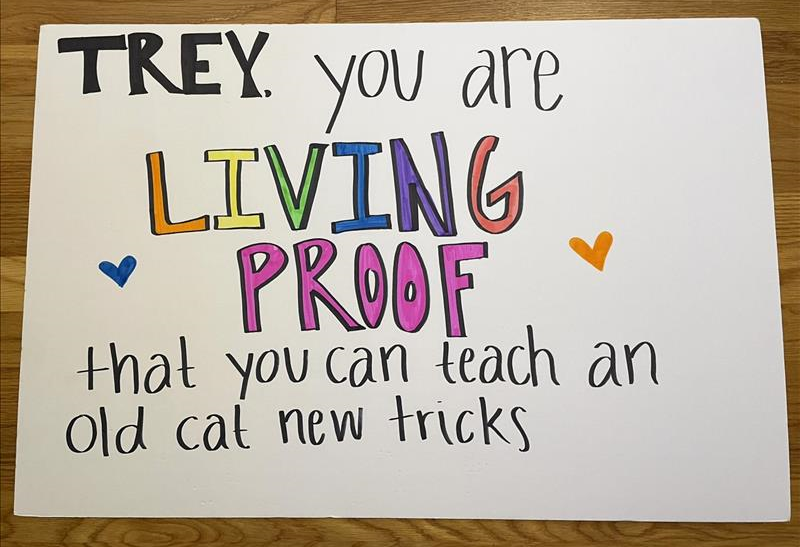 TREY. you are
LIVING
PROOF
that you can teach an
old cat new tricks